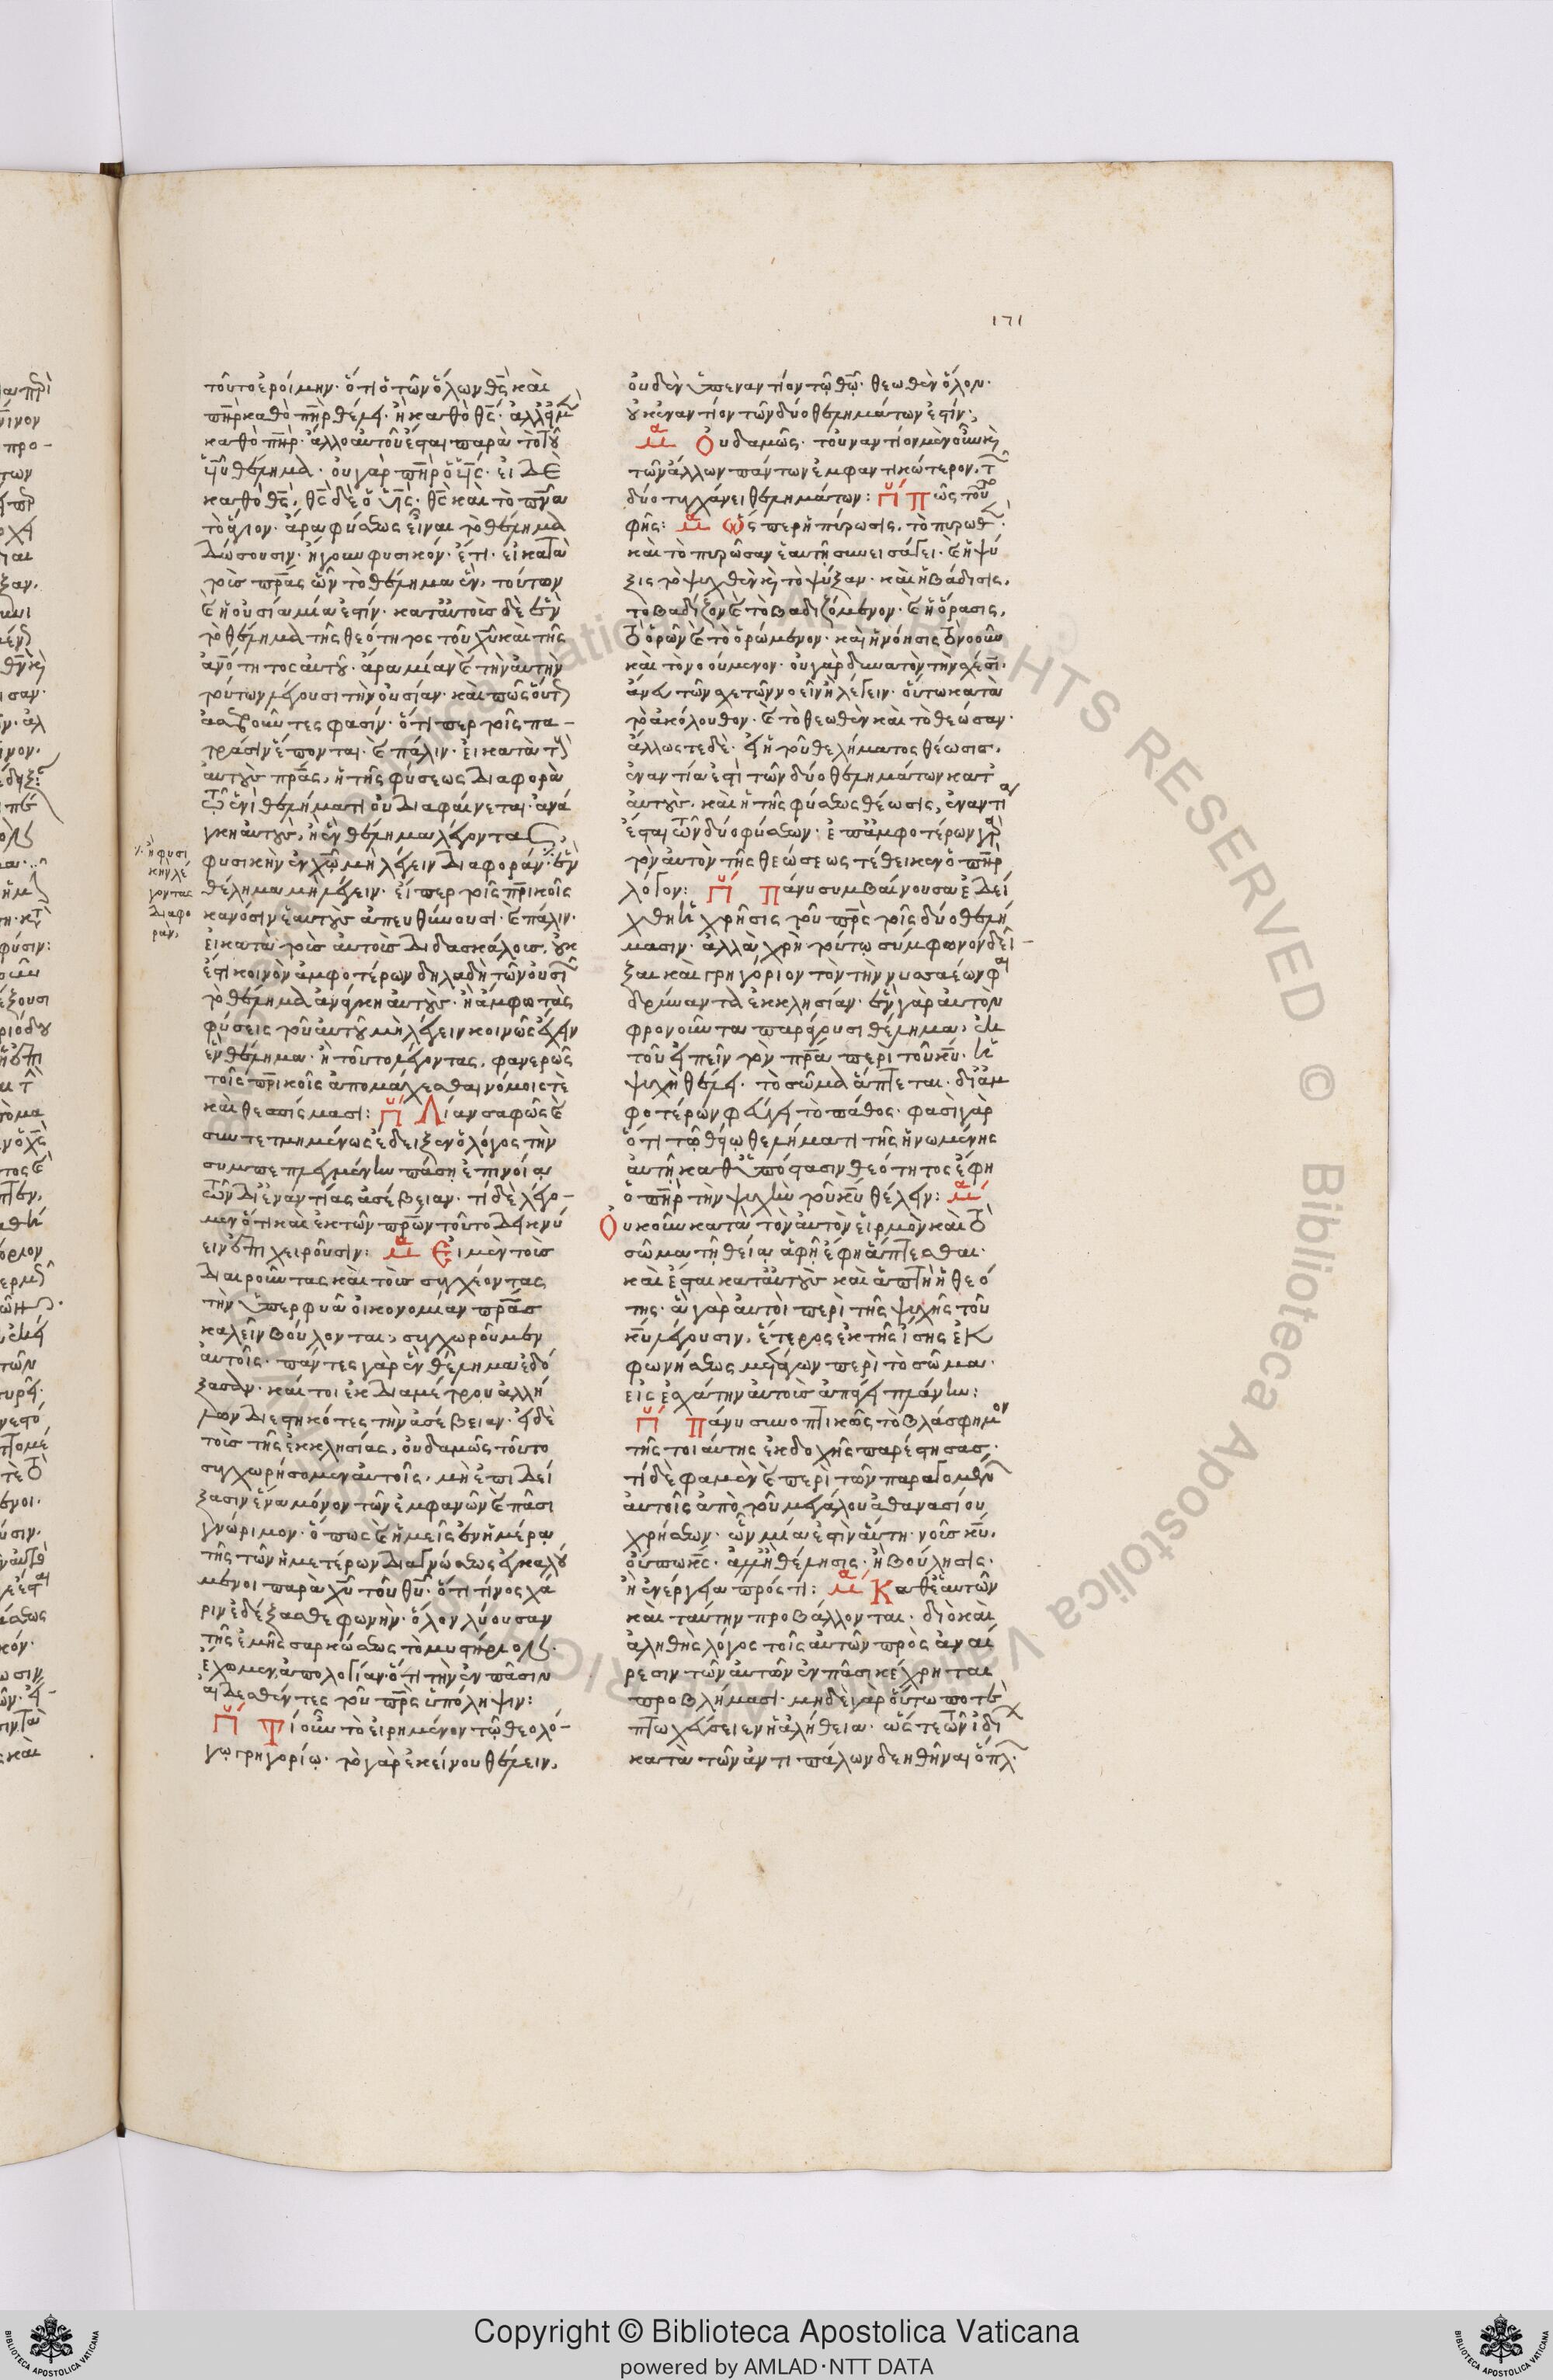 171
τοῦτο ἐροίμην· ὅτι ὁ τῶν ὅλων θς̅ καὶ
πη̅ρ καθὸ πη̅ρ θέλει· ἢ καθὸ θς̅· ἀλλ' εἰ μὲν
καθὸ πη̅ρ· ἄλλο αὐτοῦ ἔσται παρὰ τὸ τοῦ
υἱοῦ θέλημα· οὐ γὰρ πη̅ρ ὁ υἱς̅· εἰ δὲ
καθὸ θς̅, θς̅ δὲ ὁ υἱς̅· θς̅ καὶ τὸ πν̅α
τὸ ἅγιον· ἄρα φύσεως εἶναι τὸ θέλημα
δώσουσιν· ἤγουν φυσικόν· ἔτι· εἰ κατὰ
τοὺς πρ̅ας ὧν τὸ θέλημα ἕν, τούτων
καὶ ἡ οὐσία μία ἐστίν· κατ' αὐτοὺς δὲ ἓν
τὸ θέλημα τῆς θεότητος τοῦ χυ̅ καὶ τῆς
ἀνο̅τητος αὐτοῦ· ἄρα μίαν καὶ τὴν αὐτὴν
τούτων λέγουσι τὴν οὐσίαν· καὶ πῶς οὕτως
ἀσεβοῦντες φασίν· ὅτιπερ τοῖς πα-
τράσιν ἕπονται· καὶ πάλιν· εἰ κατὰ τοὺς
αὐτοὺς πρ̅ας, ἡ τῆς φύσεως διαφορὰ
τῷ ἑνὶ θελήματι οὐ διαφαίνεται· ἀνά
γκη αὐτοὺς, ἢ ἓν θέλημα λέγοντας
φυσικὴν ἐν χω̅ μὴ λέγειν διαφοράν· ἓν
θέλημα μὴ λέγειν· εἴπερ τοῖς πρ̅ικοῖς
κανόσιν ἑαυτοὺς ἀπευθύνουσι· καὶ πάλιν·
εἰ κατὰ τοὺς αὐτοὺς διδασκάλους, οὐκ
ἔστι κοινὸν ἀμφοτέρων δηλαδὴ τῶν οὐσιῶν
τὸ θέλημα ἀνάγκη αὐτοὺς· ἢ ἄμφω τὰς
φύσεις τοῦ αὐτοῦ μὴ λέγειν κοινῶς ἔχειν
ἓν θέλημα· ἢ τοῦτο λέγοντας, φανερῶς
τοῖς πρ̅ικοῖς ἀπομάχεσθαι νόμοις τὲ
καὶ θεσπίσμασι: Πύ Λίαν σαφῶς καὶ
συντετμημένως ἔδειξεν ὁ λόγος τὴν
συμπεπλεγμένην πάσῃ ἐπινοίᾳ
τῶν δι' ἐναντίας ἀσέβειαν· τί δὲ λέγο-
μεν ὅτι καὶ ἐκ τῶν πρ̅ων τοῦτο δεικνύ
ειν ἐπιχειροῦσιν: Μά Εἰ μὲν τοὺς
διαιροῦντας καὶ τοὺς συγχέοντας
τὴν ὑπερφυᾶ οἰκονομίαν πρ̅ας
καλεῖν βούλονται, συγχωροῦμεν
αὐτοῖς· πάντες γὰρ ἓν θέλημα ἐδό
ξασαν· καίτοι ἐκ διαμέτρου ἀλλή
λων διεστηκότες τὴν ἀσέβειαν· εἰ δὲ
τοὺς τῆς ἐκκλησίας, οὐδαμῶς τοῦτο
συγχωρήσομεν αὐτοῖς, μὴ ἐπιδεί
ξασιν ἕνα μόνον τῶν ἐμφανῶν καὶ πᾶσι
γνώριμον· ὅπως καὶ ἡμεῖς ἐν ἡμέρᾳ
τῆς τῶν ἡμετέρων διαγνώσεως ἐγκαλού
μενοι παρὰ χυ̅ τοῦ θυ̅· ὅτι τίνος χά
ριν ἐδέξασθε φωνὴν· ὅλον λύουσαν
τῆς ἐμῆς σαρκώσεως τὸ μυστήριον·
ἔχωμεν ἀπολογίαν· ὅτι τὴν ἐν πᾶσιν
αἰδεσθέντες τοῦ πρ̅ς ὑπόληψιν:
Πύ Τί οὖν τὸ εἰρημένον τῷ θεολό-
γῳ γρηγορίῳ· τὸ γὰρ ἐκείνου θέλειν,
ἢ φυσι
κὴν λέ
γοντας
διαφο
ράν,
οὐδὲν ὑπεναντίον τῷ θω̅· θεωθὲν ὅλον·
οὐκ ἐναντίον τῶν δύο θελημάτων ἐστίν,
Μά Οὐδαμῶς· τοὐναντίον μὲν οὖν καὶ
τῶν ἄλλων πάντων ἐμφαντικώτερον, τῶν
δύο τυγχάνει θελημάτων: Πύ Πῶς τοῦτο
φῄς: Μά Ὥσπερ ἡ πύρωσις, τὸ πυρωθὲν·
καὶ τὸ πυρῶσαν ἑαυτῇ συνεισάγει· καὶ ἡ ψύ
ξις τὸ ψυχθὲν καὶ τὸ ψύξαν· καὶ ἡ βάδισις,
τὸ βαδίζον καὶ τὸ βαδιζόμενον· καὶ ἡ ὅρασις,
τὸ ὁρῶν καὶ τὸ ὁρώμενον· καὶ ἡ νόησις τὸ νοοῦν
καὶ τὸ νοούμενον· οὐ γὰρ δυνατὸν τὴν σχέσιν·
ἄνευ τῶν σχετῶν νοεῖν ἢ λέγειν· οὕτω κατὰ
τὸ ἀκόλουθον· καὶ τὸ θεωθὲν καὶ τὸ θεώσαν·
ἄλλως τε δὲ· εἰ ἡ τοῦ θελήματος θέωσις,
ἐναντία ἐστὶ τῶν δύο θελημάτων κατ'
αὐτοὺς· καὶ ἡ τῆς φύσεως θέωσις, ἐναντία
ἔσται τῶν δύο φύσεων· ἐπ' ἀμφοτέρων γὰρ
τὸν αὐτὸν τῆς θεώσεως τέθεικεν ὁ πη̅ρ
λόγον: Πύ Πάνυ συμβαίνουσα ἐδεί
χθη ἡ χρῆσις τοῦ πρ̅ς τοῖς δύο θελή
μασιν· ἀλλὰ χρὴ τούτῳ σύμφωνον δεῖ-
ξαι καὶ γρηγόριον τὸν τὴν νυσσαέων φαι
δρύναντα ἐκκλησίαν· ἓν γὰρ αὐτὸν
φρονοῦντα παράγουσι θέλημα, ἐκ
τοῦ εἰπεῖν τὸν πρ̅α περὶ τοῦ κυ̅· ἡ
ψυχὴ θέλει· τὸ σῶμα ἅπτεται· δι' ἀμ
φοτέρων φεύγει τὸ πάθος· φασὶ γὰρ
ὅτι τῷ θείῳ θελήματι τῆς ἡνωμένης
αὐτῇ καθ' ὑπόστασιν θεότητος ἔφη
ὁ πη̅ρ τὴν ψυχὴν τοῦ κυ̅ θέλειν: Μά
Οὐκοῦν κατὰ τὸν αὐτὸν εἱρμὸν καὶ τὸ
σῶμα τῇ θείᾳ ἁφῇ ἔφη ἅπτεσθαι·
καὶ ἔσται κατ' αὐτοὺς καὶ ἁπτὴ ἡ θεό
της· ἃ γὰρ αὐτοὶ περὶ τῆς ψυχῆς τοῦ
κυ̅ λέγουσιν, ἕτερος ἐκ τῆς ἴσης ἐκ
φωνήσεως μετάγων περὶ τὸ σῶμα·
εἰς ἐσχάτην αὐτοὺς ἀπάγει πλάνην:
Πύ Πάνυ συνοπτικῶς τὸ βλάσφημον
τῆς τοιαύτης ἐκδοχῆς παρέστησας·
τί δὲ φαμὲν καὶ περὶ τῶν παραγομένων
αὐτοῖς ἀπὸ τοῦ μεγάλου ἀθανασίου
χρήσεων· ὧν μία ἐστὶν αὕτη· νοῦς κυ̅,
οὔπω κς̅· ἀλλ' ἢ θέλησις· ἢ βούλησις·
ἢ ἐνέργεια πρός τι: Μά Καθ' ἑαυτῶν
καὶ ταύτην προβάλλονται· διὸ καὶ
ἀληθὴς λόγος τοῖς αὐτῶν πρὸς ἀναί
ρεσιν τῶν αὐτῶν ἐν πᾶσι κέχρηται
προβλήμασι· μηδὲ γὰρ οὕτω ποτὲ
πτωχεύσειεν ἡ ἀλήθεια· ὥστε τῶν ἰδίων
κατὰ τῶν ἀντιπάλων δεηθῆναι ὅπλων·
Copyright © Biblioteca Apostolica Vaticana
powered by AMLAD·NTT DATA